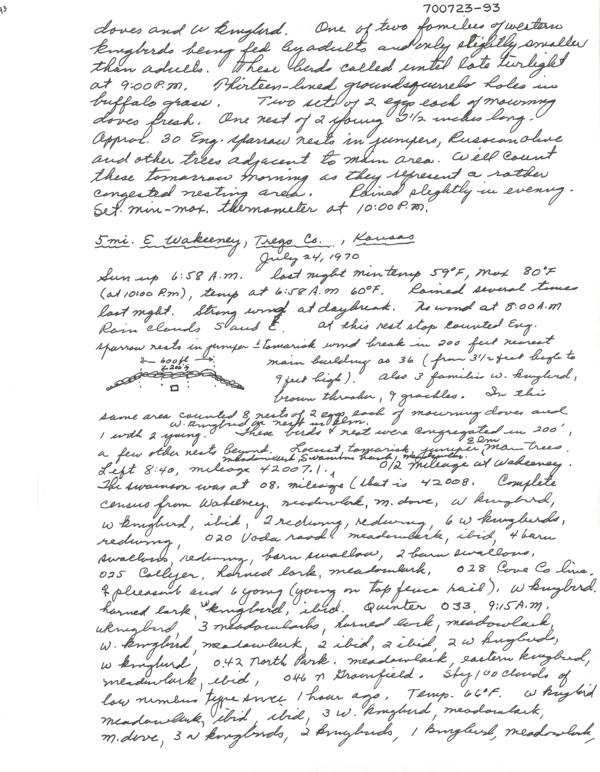 700723-93
doves and W kingbird. One of two families of western
kingbirds being fed by adults and only slightly smaller
than adults. These birds called until late twilight
at 9:00 P.M. Thirteen-lined groundsquirrels holes in
buffalo grass. Two sets of 2 eggs each of mourning
doves fresh. One nest of 2 young 3 1/2 inches long.
Approx. 30 Eng. sparrow nests in junipers, Russian olive
and other trees adjacent to main area. Will count
these tomorrow morning as they represent a rather
congested nesting area. Rained slightly in evening.
Set min-max. thermometer at 10:00 P.M.
5 mi. E Wakeeney, Trego Co., Kansas
July 24, 1970
Sun up 6:58 A.M. last night min temp 59°F, max 80°F
(at 10:00 P.m), temp at 6:58 A.m 60°F. Rained several times
last night. Strong wind at daybreak. No wind at 8:00 A.M
Rain clouds S and E. At this rest stop counted Eng.
sparrow nests in juniper + tamarisk wind break in 200 feet nearest
600 ft
200 ft
main building as 36 (from 3 1/2 feet high to
9 feet high). Also 3 families W. kingbird,
brown thrasher, 9 grackles. In this
same area counted 8 nests of 2 eggs each of mourning doves and
W. kingbird on nest in Elm.
1 with 2 young. These birds + nest were congregated in 200',
a few other nests beyond. Locust, tamarisk, juniper, Elm trees.
meadowlark, Swainson hawk,
Left 8:40, mileage 42007.1. 012 mileage at Wakeeney.
The swainson was at 08. mileage (that is 42008. Complete
census from Wakeeney, meadowlark, m. dove, W kingbird,
W kingbird, ibid, 2 redwing, redwing, 6 W kingbirds,
redwing, 020 Voda road meadowlark, ibid, 4 barn
swallows, redwing, barn swallow, 2 barn swallows,
025 Collyer, horned lark, meadowlark. 028 Gove Co line.
♀ pheasant and 6 young (young on top fence rail). W kingbird.
horned lark, W kingbird, ibid. Quinter 033, 9:15 A.M.
W kingbird, 3 meadowlarks, horned lark, meadowlark,
W. kingbird, meadowlark, 2 ibid, 2 ibid, 2 W kingbirds,
W kingbird, 042 North Park. meadowlark, eastern kingbird,
meadowlark, ibid, 046 N Grainfield. Sky 100 clouds of
low nimbus type since 1 hour ago. Temp. 66°F. W kingbird
meadowlark, ibid, ibid, 3 W. kingbird, meadowlark,
m. dove, 3 W kingbirds, 2 kingbirds, 1 kingbird, meadowlark,